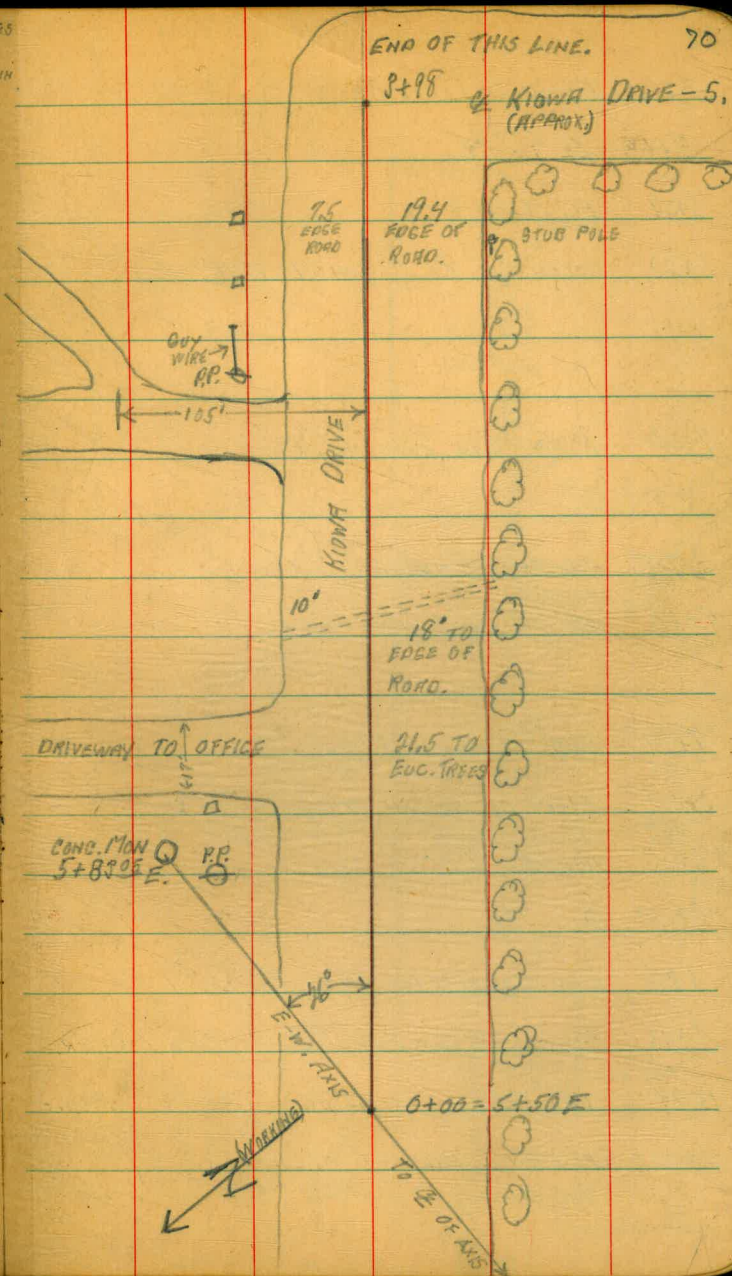 70
END OF THIS LINE.
3+98
℄ KIOWA DRIVE - S.
(APPROX.)
7.5
EDGE
ROAD
19.4
EDGE OF
ROAD.
STUB POLE
GUY
WIRE
P.P.
105'
KIOWA DRIVE
10"
18" TO
EDGE OF
ROAD.
DRIVEWAY TO OFFICE
21.5 TO
EUC. TREES
CONC. MON
E.
P.P.
E-W. AXIS
0+00 = 5+50 E
N (WORKING)
TO ℄ OF AXIS